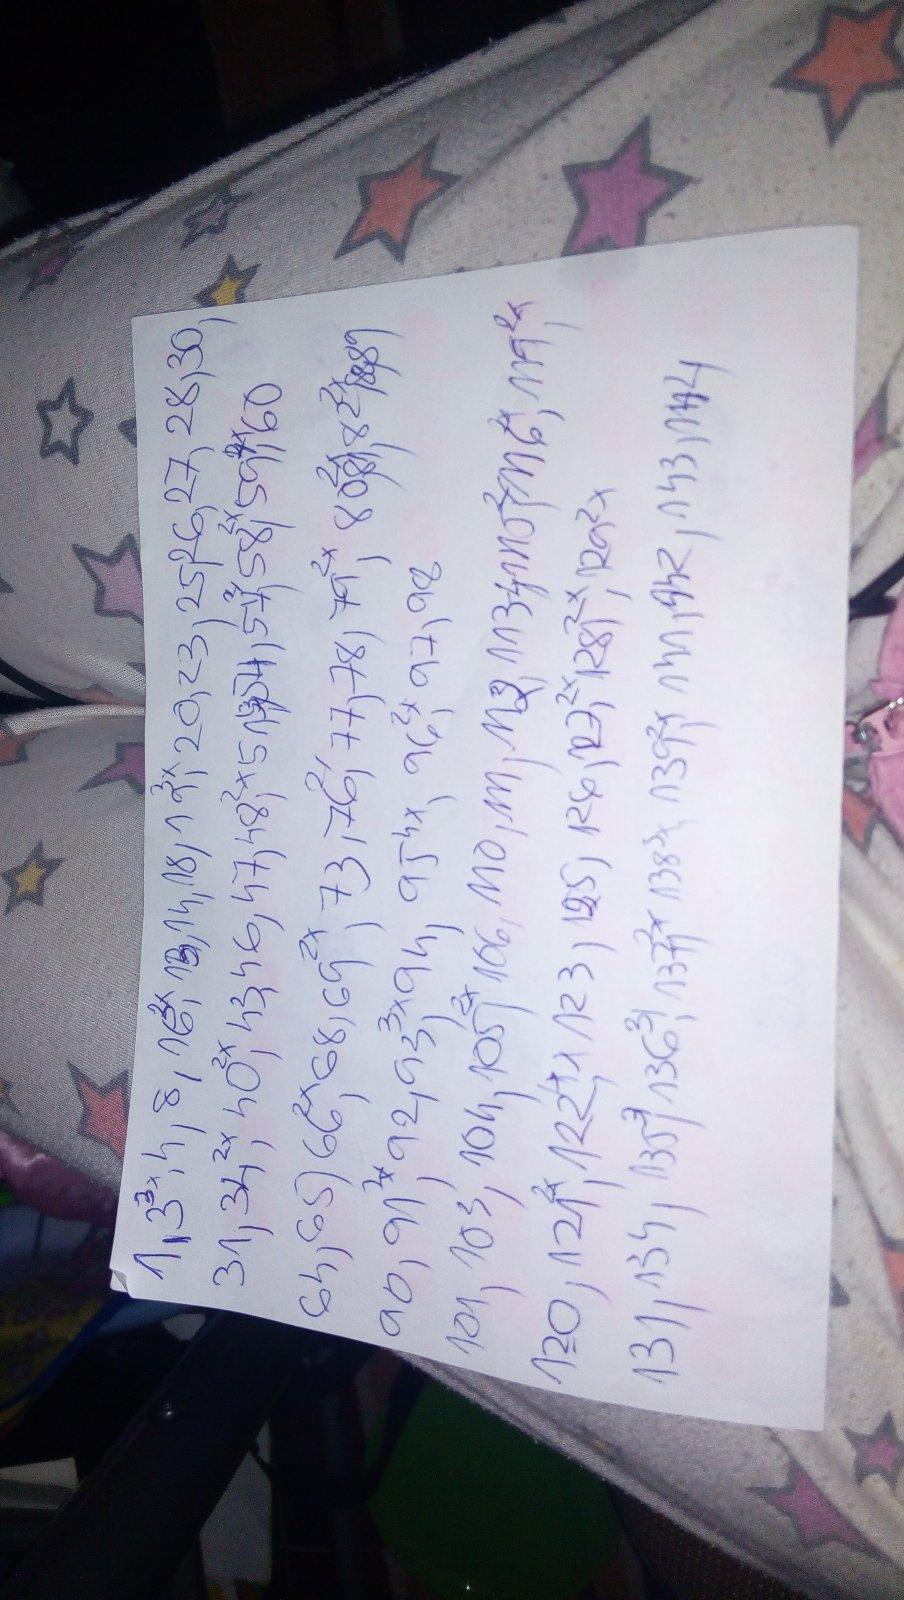 1, 3³ˣ, 4, 8, 16²ˣ, 13, 14, 18, 19³ˣ, 20, 23, 25, 26, 27, 28, 30,
31, 34²ˣ, 40²ˣ, 43, 46, 47, 48²ˣ, 51, 54, 57²ˣ, 58²ˣ, 59²ˣ, 60
64, 65, 66²ˣ, 68, 69²ˣ, 73, 76²ˣ, 77, 78, 79²ˣ, 80²ˣ, 82²ˣ, 89
90, 91²ˣ, 92, 93³ˣ, 94, 95⁴ˣ, 96²ˣ, 97, 98
101, 103, 104, 105²ˣ, 106, 110, 111, 113, 116, 119²ˣ,
120, 121²ˣ, 122, 123, 125, 126, 127²ˣ, 128²ˣ, 129²ˣ
131, 134, 135, 136³ˣ, 137²ˣ, 138³ˣ, 139²ˣ, 141, 142, 143, 144,